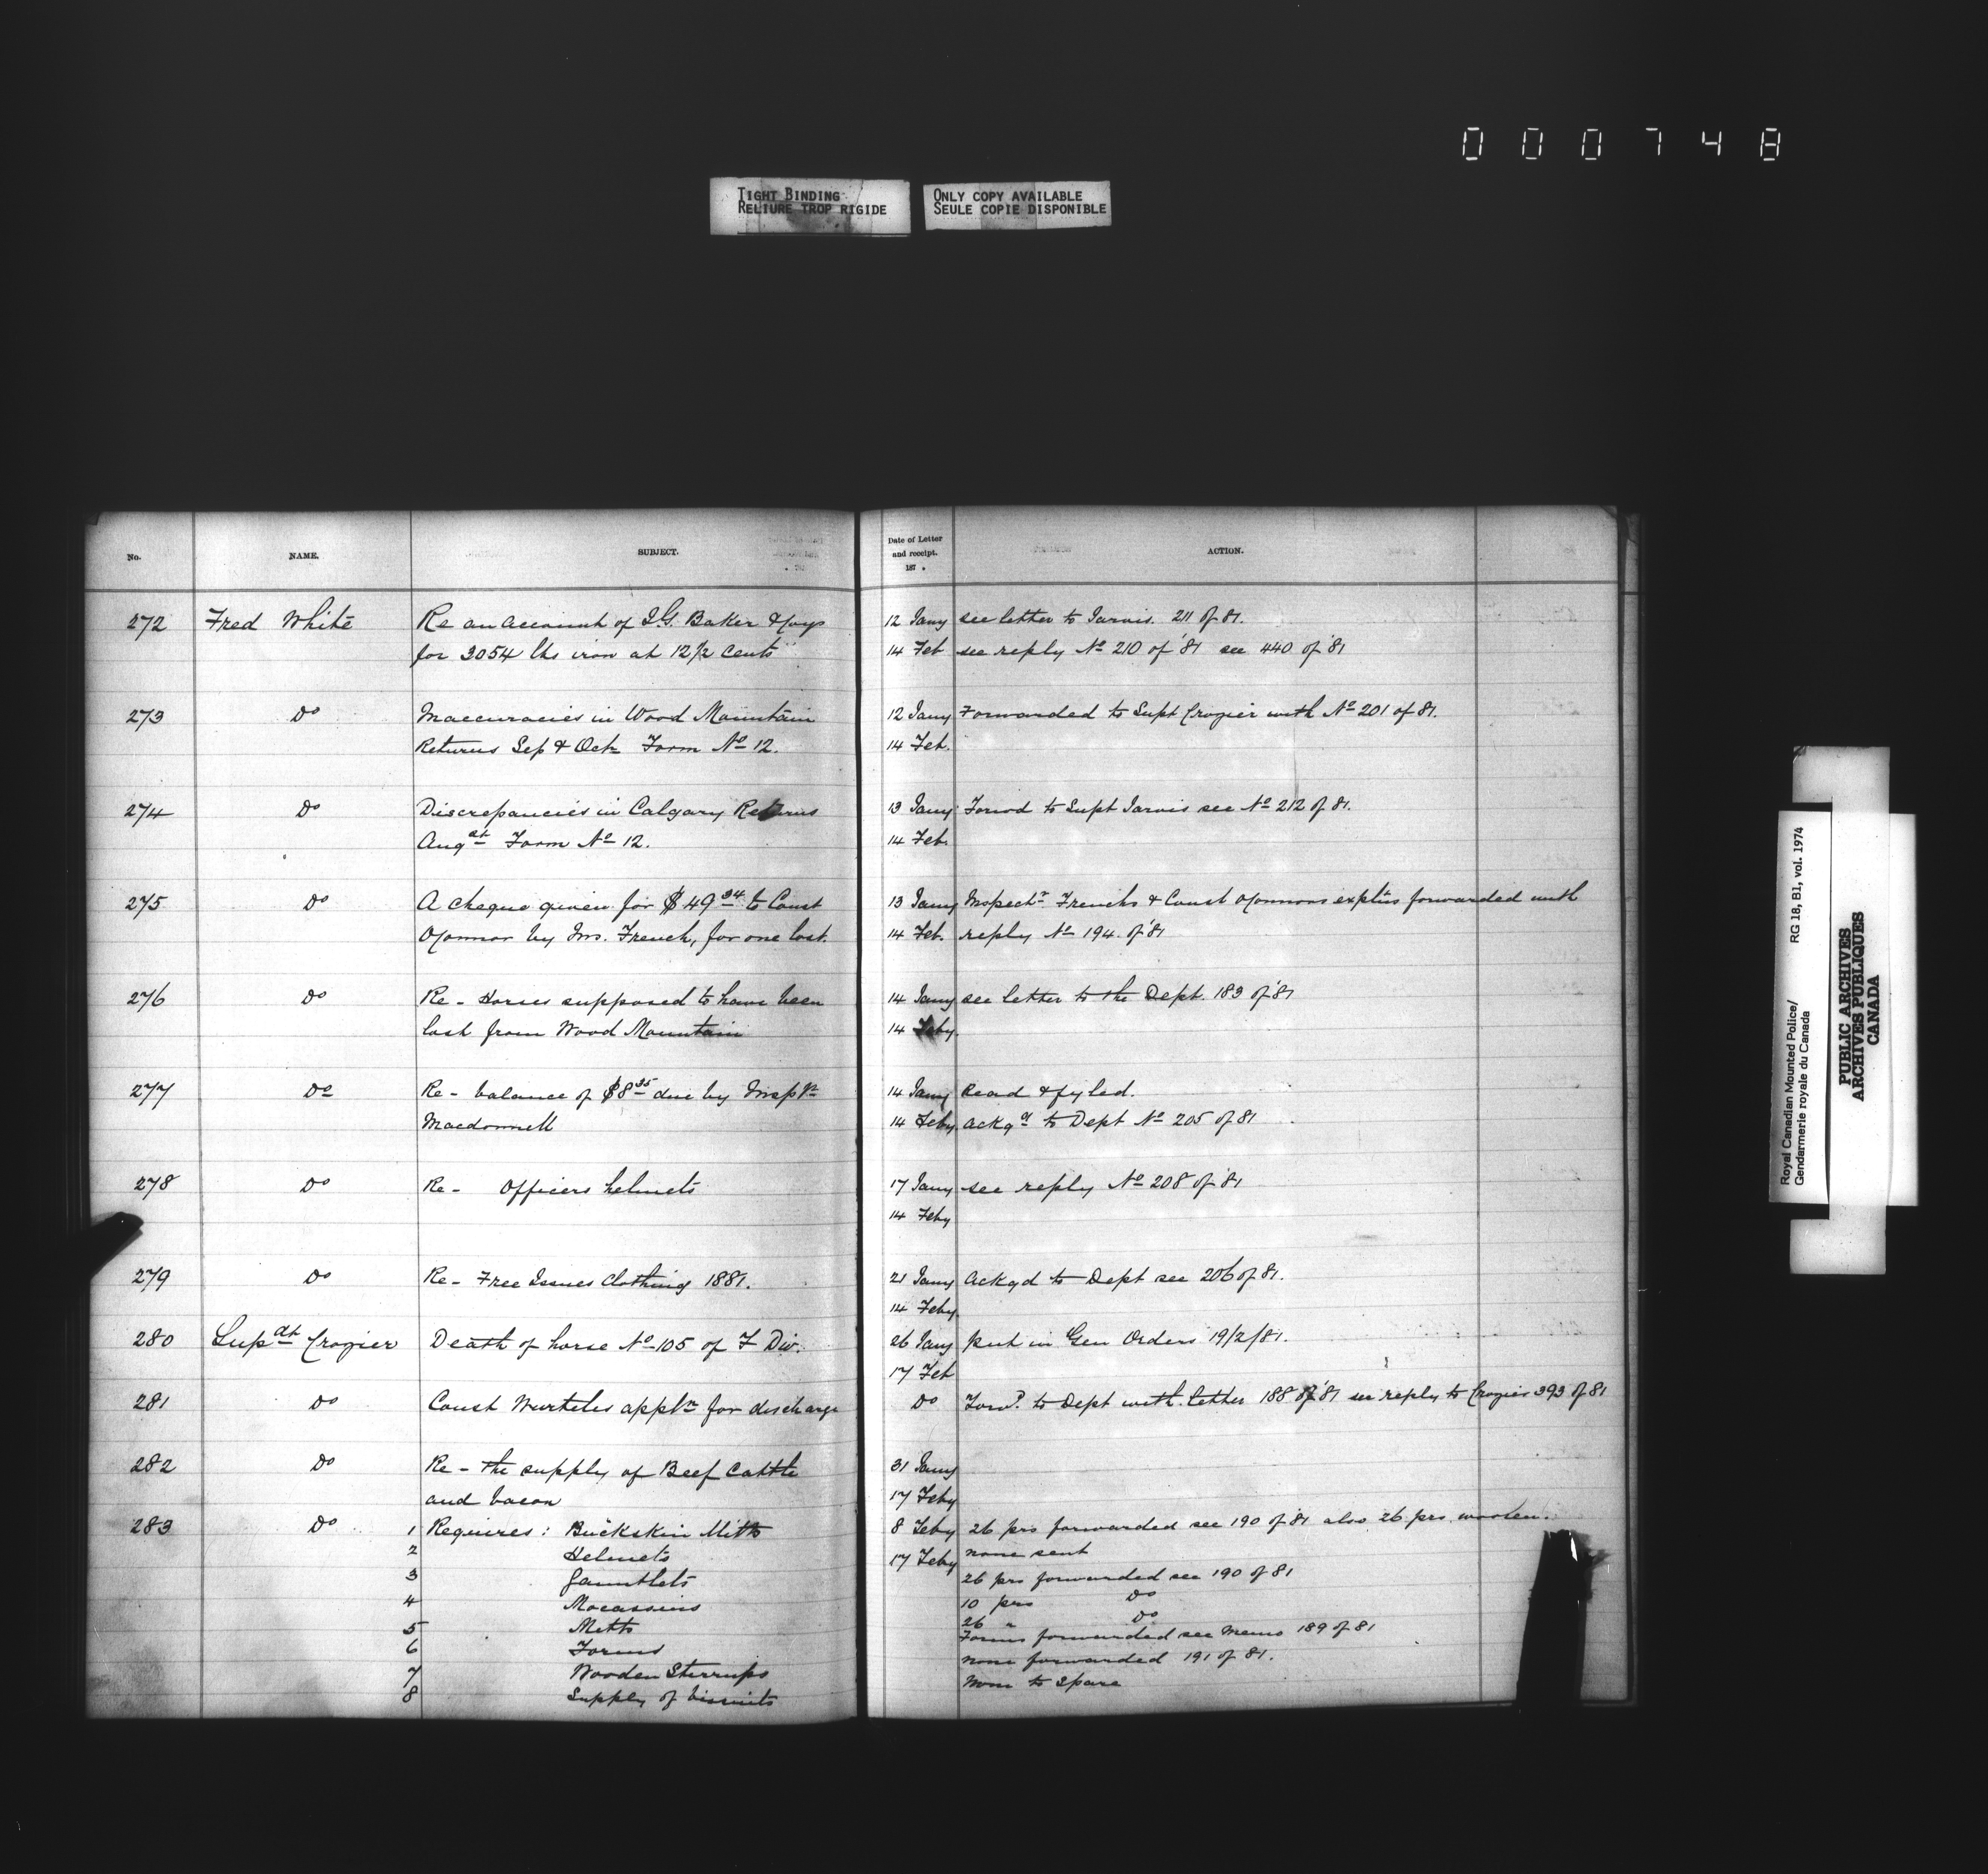 000748
TIGHT BINDING
RELIURE TROP RIGIDE
ONLY COPY AVAILABLE
SEULE COPIE DISPONIBLE
No. NAME. SUBJECT. Date of Letter and receipt. 187 . ACTION.
272 Fred White Re an account of I.G. Baker & Coys 12 Jany see letter to Jarvis. 211 of 81.
for 3054 lbs iron at 12 1/2 cents 14 Feb see reply No 210 of '81 see 440 of '81
273 Do Inaccuracies in Wood Mountain 12 Jany Forwarded to Supt Crozier with No 201 of 81.
Returns Sep & Oct Form No 12. 14 Feb.
274 Do Discrepancies in Calgary Returns 13 Jany Forwd to Supt Jarvis see No 212 of 81.
Augst Form No 12. 14 Feb.
275 Do A cheque given for $49.34 to Const 13 Jany Inspectr Frenchs & Const OConnors explns forwarded with
OConnor by Ins. French, for one lost. 14 Feb. reply No 194 of '81
276 Do Re - Horses supposed to have been 14 Jany see letter to the Dept. 183 of '81
lost from Wood Mountain 14 Feby.
277 Do Re - balance of $8.35 due by Inspr 14 Jany Read & fyled.
Macdonnell 14 Feby. ackgd to Dept No 205 of 81
278 Do Re - Officers helmets 17 Jany see reply No 208 of '81
14 Feby
279 Do Re - Free Issues Clothing 1881. 21 Jany Ackgd to Dept see 206 of 81.
14 Feby.
280 Supdt Crozier Death of horse No 105 of F Div. 26 Jany put in Gen Orders 19/2/81.
17 Feb
281 Do Const Wurteles appln for discharge Do Forwd. to Dept with letter 188 of '81 see reply to Crozier 393 of 81
282 Do Re - the supply of Beef Cattle 31 Jany
and bacon 17 Feby
283 Do 1 Requires: Buckskin Mitts 8 Feby 26 prs forwarded see 190 of 81 also 26 prs woolen.
2 Helmets 17 Feby none sent
3 Gauntlets 26 prs forwarded see 190 of 81
4 Mocassins 10 prs Do
5 Mitts 26 " Do
6 Forms Forms forwarded see Memo 189 of 81
7 Wooden Stirrups none forwarded 191 of 81.
8 Supply of biscuits None to Spare
Royal Canadian Mounted Police/
Gendarmerie royale du Canada
RG 18, B1, vol. 1974
PUBLIC ARCHIVES
ARCHIVES PUBLIQUES
CANADA